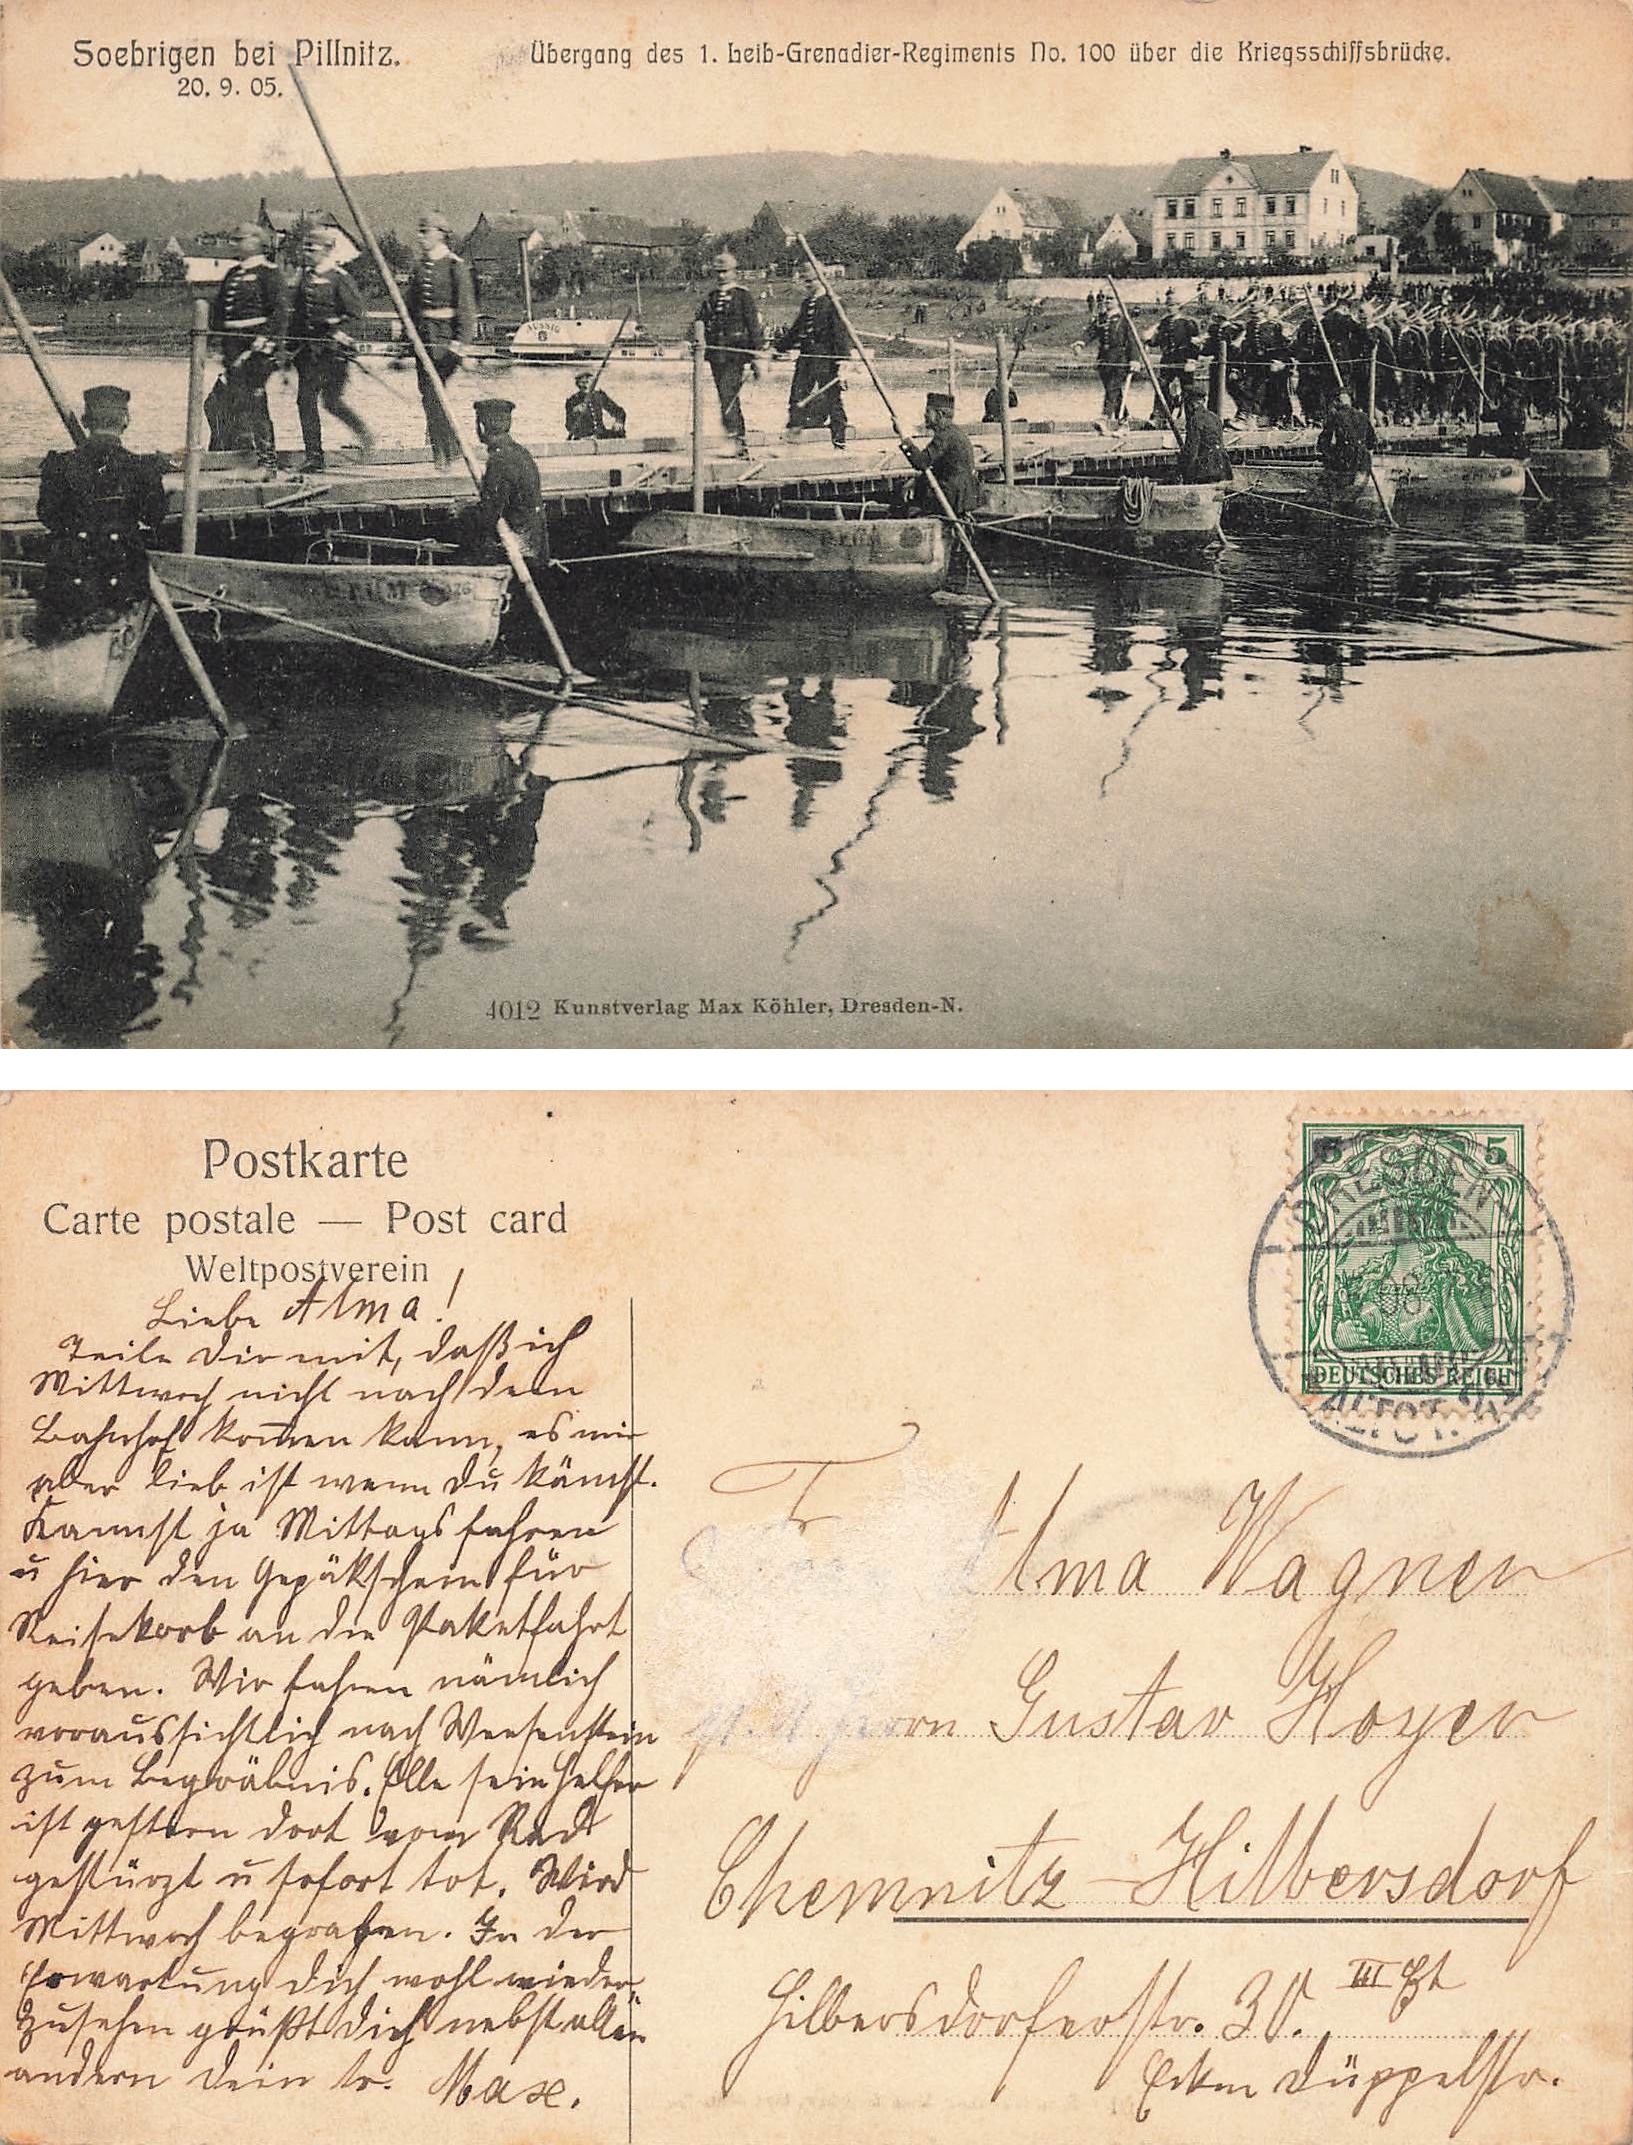 Soebrigen bei Pillnitz.
20. 9. 05.
Übergang des 1. Leib-Grenadier-Regiments No. 100 über die Kriegsschiffsbrücke.
AUSSIG
6
4012 Kunstverlag Max Köhler, Dresden-N.
Postkarte
Carte postale — Post card
Weltpostverein
Liebe Alma!
Teile Dir mit, daß ich
Mittwoch nicht nach dem
Bahnhof kom̄en kann, es mir
aber lieb ist wenn Du kämst.
Kannst ja Mittags fahren
u hier den Gepäkschein für
Reisekorb an die Paketfahrt
geben. Wir fahren nämlich
voraussichtlich nach Weesenstein
zum Begräbnis. Elle sein Helfer
ist gestern dort vom Rad
gestürzt u sofort tot. Wird
Mittwoch begraben. In der
Erwartung Dich wohl wieder
zusehen grüßt Dich nebst allen
andern Dein tr. Max.
5 5
DRESDEN
DEUTSCHES REICH
ALTST.
Alma Wagner
Herrn Gustav Hoyer
Chemnitz-Hilbersdorf
Hilbersdorferstr. 30. III Et
Ecke Düppelstr.